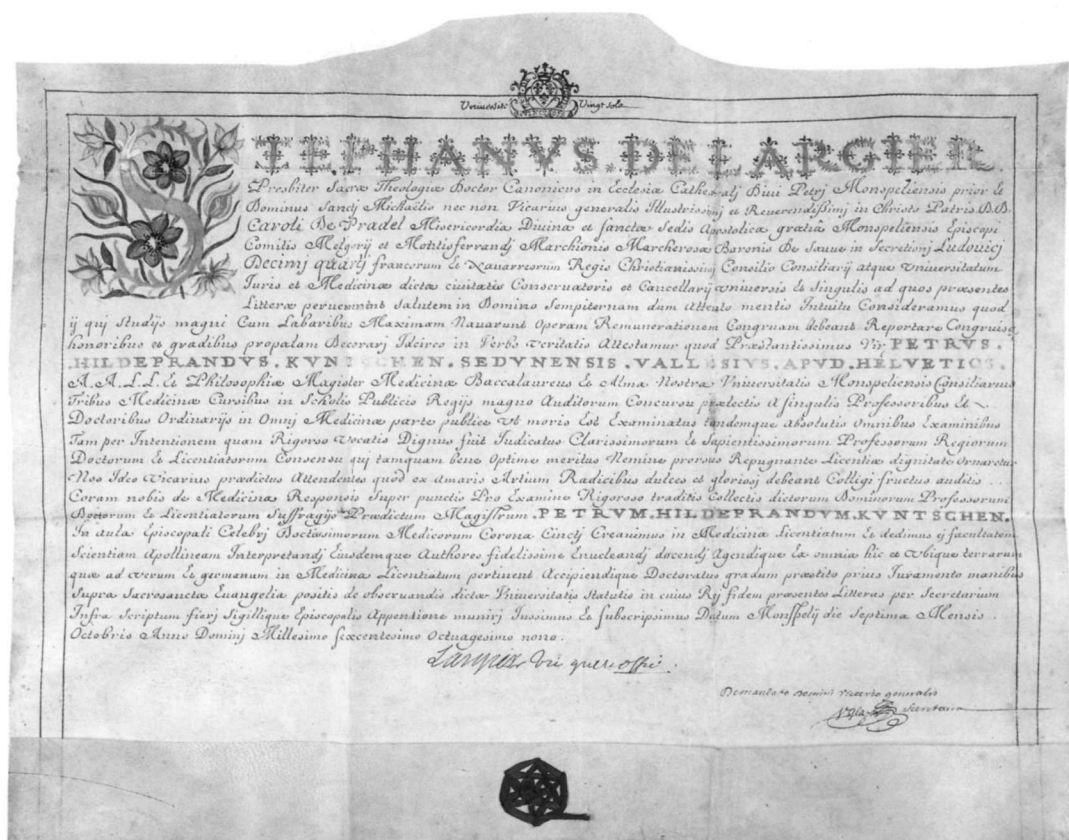 Vniuersite Vingt sols
STEPHANVS. DE LARGIER.
Presbiter Sacræ Theologiæ Doctor Canonicus in Ecclesia Cathedralj Diui Petrj Monspeliensis prior et
Dominus Sanctj Michaelis nec non Vicarius generalis Illustrissimj et Reuerendissimj in Christo Patris D.D.
Caroli De Pradel Misericordia Diuina et sanctæ Sedis Apostolicæ gratia Monspeliensis Episcopi
Comitis Melgorij et Montisferrandj Marchionis Marcherosæ Baronis De Sauue in Secretiorj Ludouicj
Decimj quartj francorum Et Nauarreorum Regis Christianissimj Consilio Consiliarij atque Vniuersitatum
Iuris et Medicinæ dictæ ciuitatis Conseruatoris et Cancellarij vniuersis Et Singulis ad quos præsentes
Litteræ peruenerint Salutem in Domino Sempiternam dum Attento mentis Intuitu Consideramus quod
ij quj Studijs magni Cum Laboribus Maximam Nauarunt Operam Remunerationem Congruam debeant Reportare Congruisq
honoribus et gradibus propalam Decorarj Idcirco in Verbo veritatis Attestamur quod Præstantissimus Vir PETRVS.
HILDEPRANDVS. KVNTSCHEN. SEDVNENSIS. VALLESIVS. APVD. HELVETIOS.
A.A.L.L. Et Philosophiæ Magister Medicinæ Baccalaureus Et Almæ Nostræ Vniuersitatis Monspeliensis Consiliarius
Tribus Medicinæ Cursibus in Scholis Publicis Regijs magno Auditorum Concursu prælectis A singulis Professoribus Et
Doctoribus Ordinarijs in Omnj Medicinæ parte publice Vt moris Est Examinatus tandemque Absolutis Omnibus Examinibus
Tam per Intentionem quam Rigoroso vocatis Dignus fuit Iudicatus Clarissimorum et Sapientissimorum Professorum Regiorum
Doctorum Et Licentiatorum Consensu quj tamquam bene Optime meritus Nemine prorsus Repugnante Licentiæ dignitate Ornaretur
Nos Ideo Vicarius prædictus Attendentes quod ex Amaris Artium Radicibus dulces et gloriosj debeant Colligi fructus auditis
Coram nobis de Medicina Responsis Super punctis Pro Examine Rigoroso traditis Collectis dictorum Dominorum Professorum
Doctorum Et Licentiatorum Suffragijs Prædictum Magistrum. PETRVM. HILDEPRANDVM. KVNTSCHEN.
In aula Episcopali Celebrj Doctissimorum Medicorum Corona Cinctj Creauimus in Medicina Licentiatum Et dedimus ej facultatem
Scientiam Apollineam Interpretandj Eiusdemque Authores fidelissime Enucleandj docendj Agendique Ea omnia hic et vbique terrarum
quæ ad verum Et germanum in Medicina Licentiatum pertinent Accipiendique Doctoratus gradum præstito prius Iuramento manibus
Supra Sacrosancta Euangelia positis de obseruandis dictæ Vniuersitatis Statutis in cuius Rej fidem presentes Litteras per Secretarium
Infra Scriptum fierj Sigillique Episcopalis Appentione munirj Iussimus Et subscripsimus Datum Monspelij die Septima Mensis
Octobris Anno Dominj Millesimo sexcentesimo Octuagesimo nono.
Largier vic
De mandato Domini Vicarij generalis
Secretarius